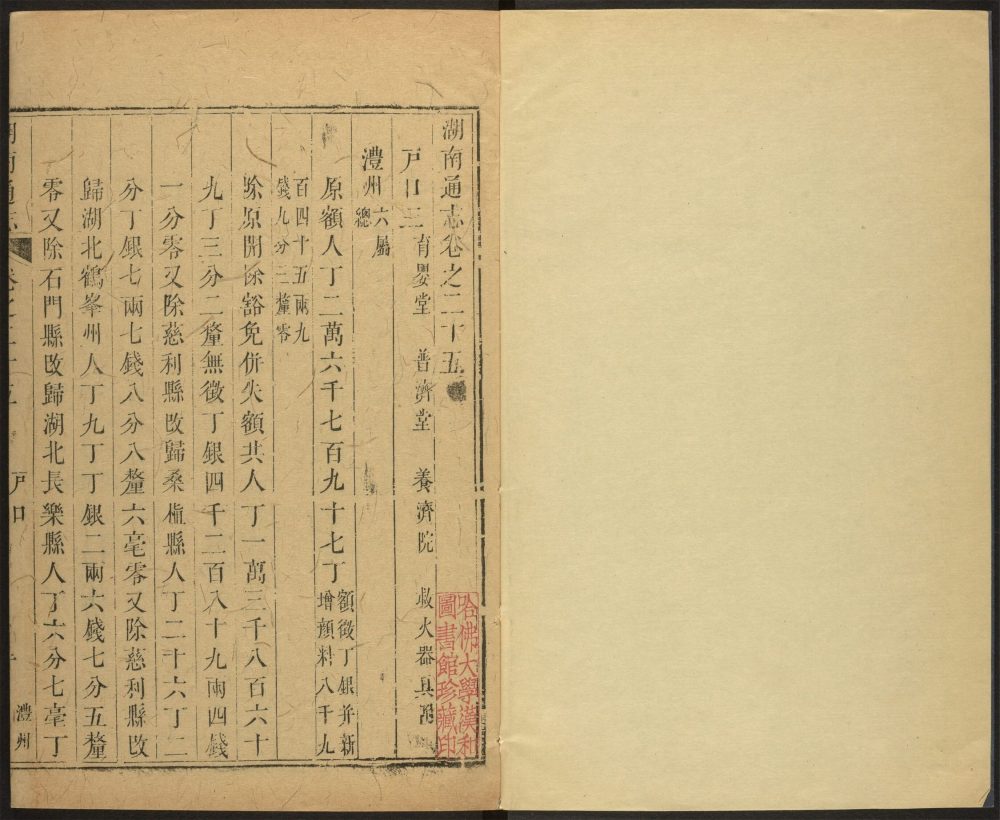 湖南通志卷之二十五
戸口三 育嬰堂 普濟堂 養濟院 救火器具附
澧州 六屬總
原額人丁二萬六千七百九十七丁 額徵丁銀并新增顔料八千九
百四十五兩九錢九分二釐零
除原開除豁免併失額共人丁一萬三千八百六十
九丁三分二釐無徵丁銀四千二百八十九兩四錢
一分零又除慈利縣改歸桑植縣人丁二十六丁二
分丁銀七兩七錢八分八釐六毫零又除慈利縣改
歸湖北鶴峯州人丁九丁丁銀二兩六錢七分五釐
零又除石門縣改歸湖北長樂縣人丁六分七毫丁
湖南通志 卷之二十五 戸口 澧州
哈佛大學漢和
圖書館珍藏印